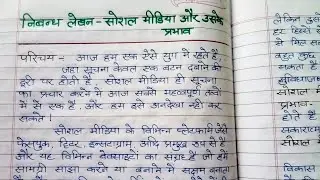 निबन्ध लेखन - सोशल मीडिया और उसके
प्रभाव
परिचय - आज हम एक ऐसे युग में रहते हैं,
जहाँ सूचना केवल एक बटन दबाने की
दूरी पर होती है। सोशल मीडिया ही सूचना
का प्रचार करने में आज सबसे महत्वपूर्ण तत्वों में
से एक हैं, और हम इसे अनदेखा नहीं कर
सकते।
सोशल मीडिया के विभिन्न प्लेटफार्म जैसे
फेसबुक, ट्विटर, इन्सटाग्राम, आदि प्रमुख रूप से हैं
और यह विभिन्न वेबसाइटों का संग्रह है जो हमें
सामग्री साझा करने या बनाने में सक्षम बनाता
लेकिन
हर
से मिल
बहुत कुछ
सकता है
सोशल मी
प्रभाव-
होती है
सकारात्म
सोशल मी
विकास